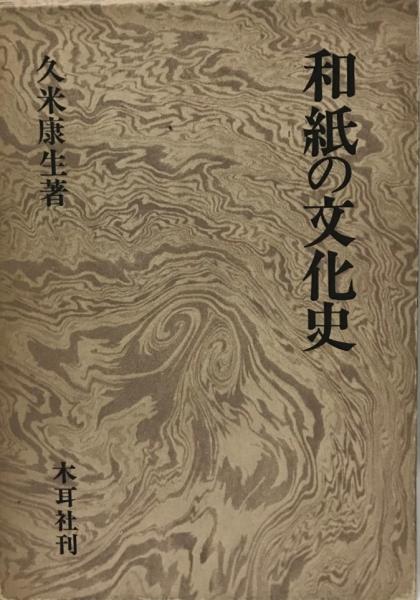 和紙の文化史
久米康生著
木耳社刊